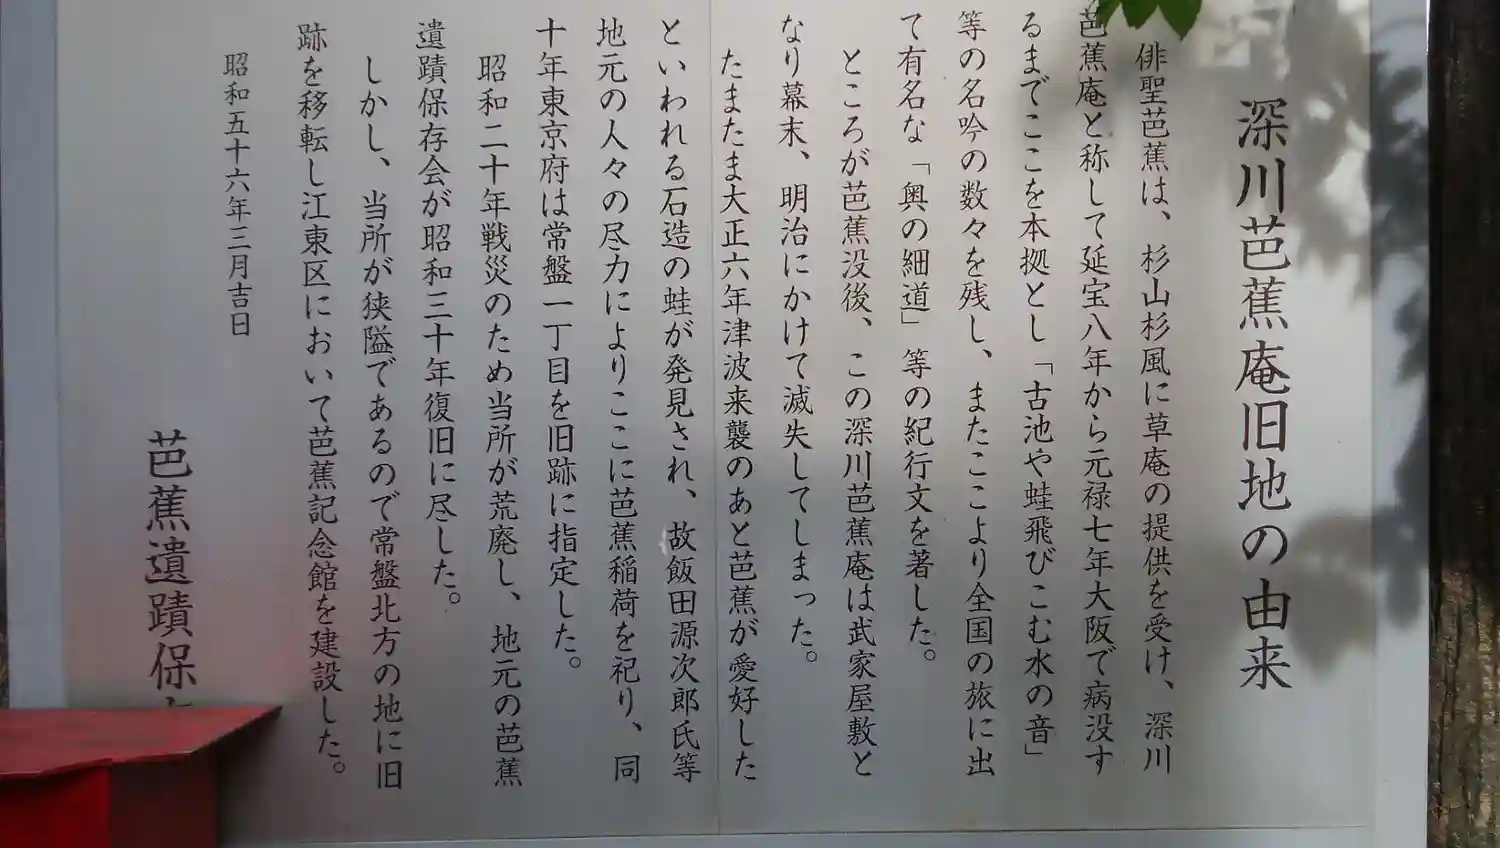 深川芭蕉庵旧地の由来
俳聖芭蕉は、杉山杉風に草庵の提供を受け、深川
芭蕉庵と称して延宝八年から元禄七年大阪で病没す
るまでここを本拠とし「古池や蛙飛びこむ水の音」
等の名吟の数々を残し、またここより全国の旅に出
て有名な「奥の細道」等の紀行文を著した。
ところが芭蕉没後、この深川芭蕉庵は武家屋敷と
なり幕末、明治にかけて滅失してしまった。
たまたま大正六年津波来襲のあと芭蕉が愛好した
といわれる石造の蛙が発見され、故飯田源次郎氏等
地元の人々の尽力によりここに芭蕉稲荷を祀り、同
十年東京府は常盤一丁目を旧跡に指定した。
昭和二十年戦災のため当所が荒廃し、地元の芭蕉
遺蹟保存会が昭和三十年復旧に尽した。
しかし、当所が狭隘であるので常盤北方の地に旧
跡を移転し江東区において芭蕉記念館を建設した。
昭和五十六年三月吉日
芭蕉遺蹟保